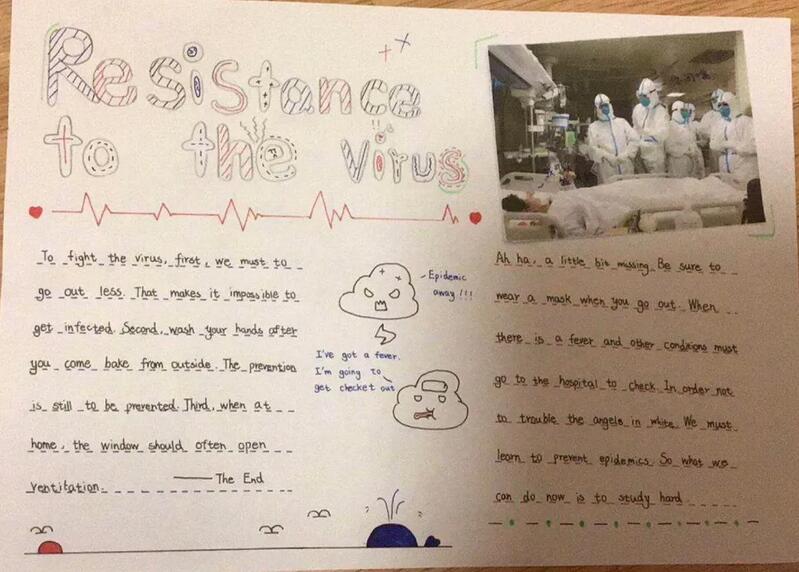 Resistance
to the Virus
To fight the virus, first, we must to
go out less. That makes it impossible to
get infected. Second, wash your hands after
you come bake from outside. The prevention
is still to be prevented. Third, when at
home, the window should often open
ventitation. —— The End
Epidemic
away!!!
I've got a fever.
I'm going to
get checket out
Ah ha, a little bit missing. Be sure to
wear a mask when you go out. When
there is a fever and other conditions must
go to the hospital to check. In order not
to trouble the angels in white. We must
learn to prevent epidemics. So what we
can do now is to study hard.